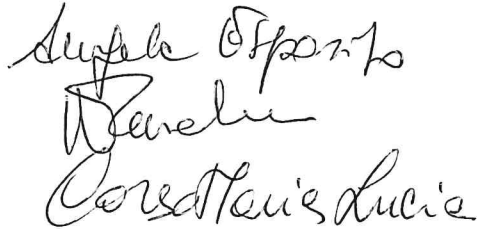 Angela Esposito
Corsa Maria Lucia